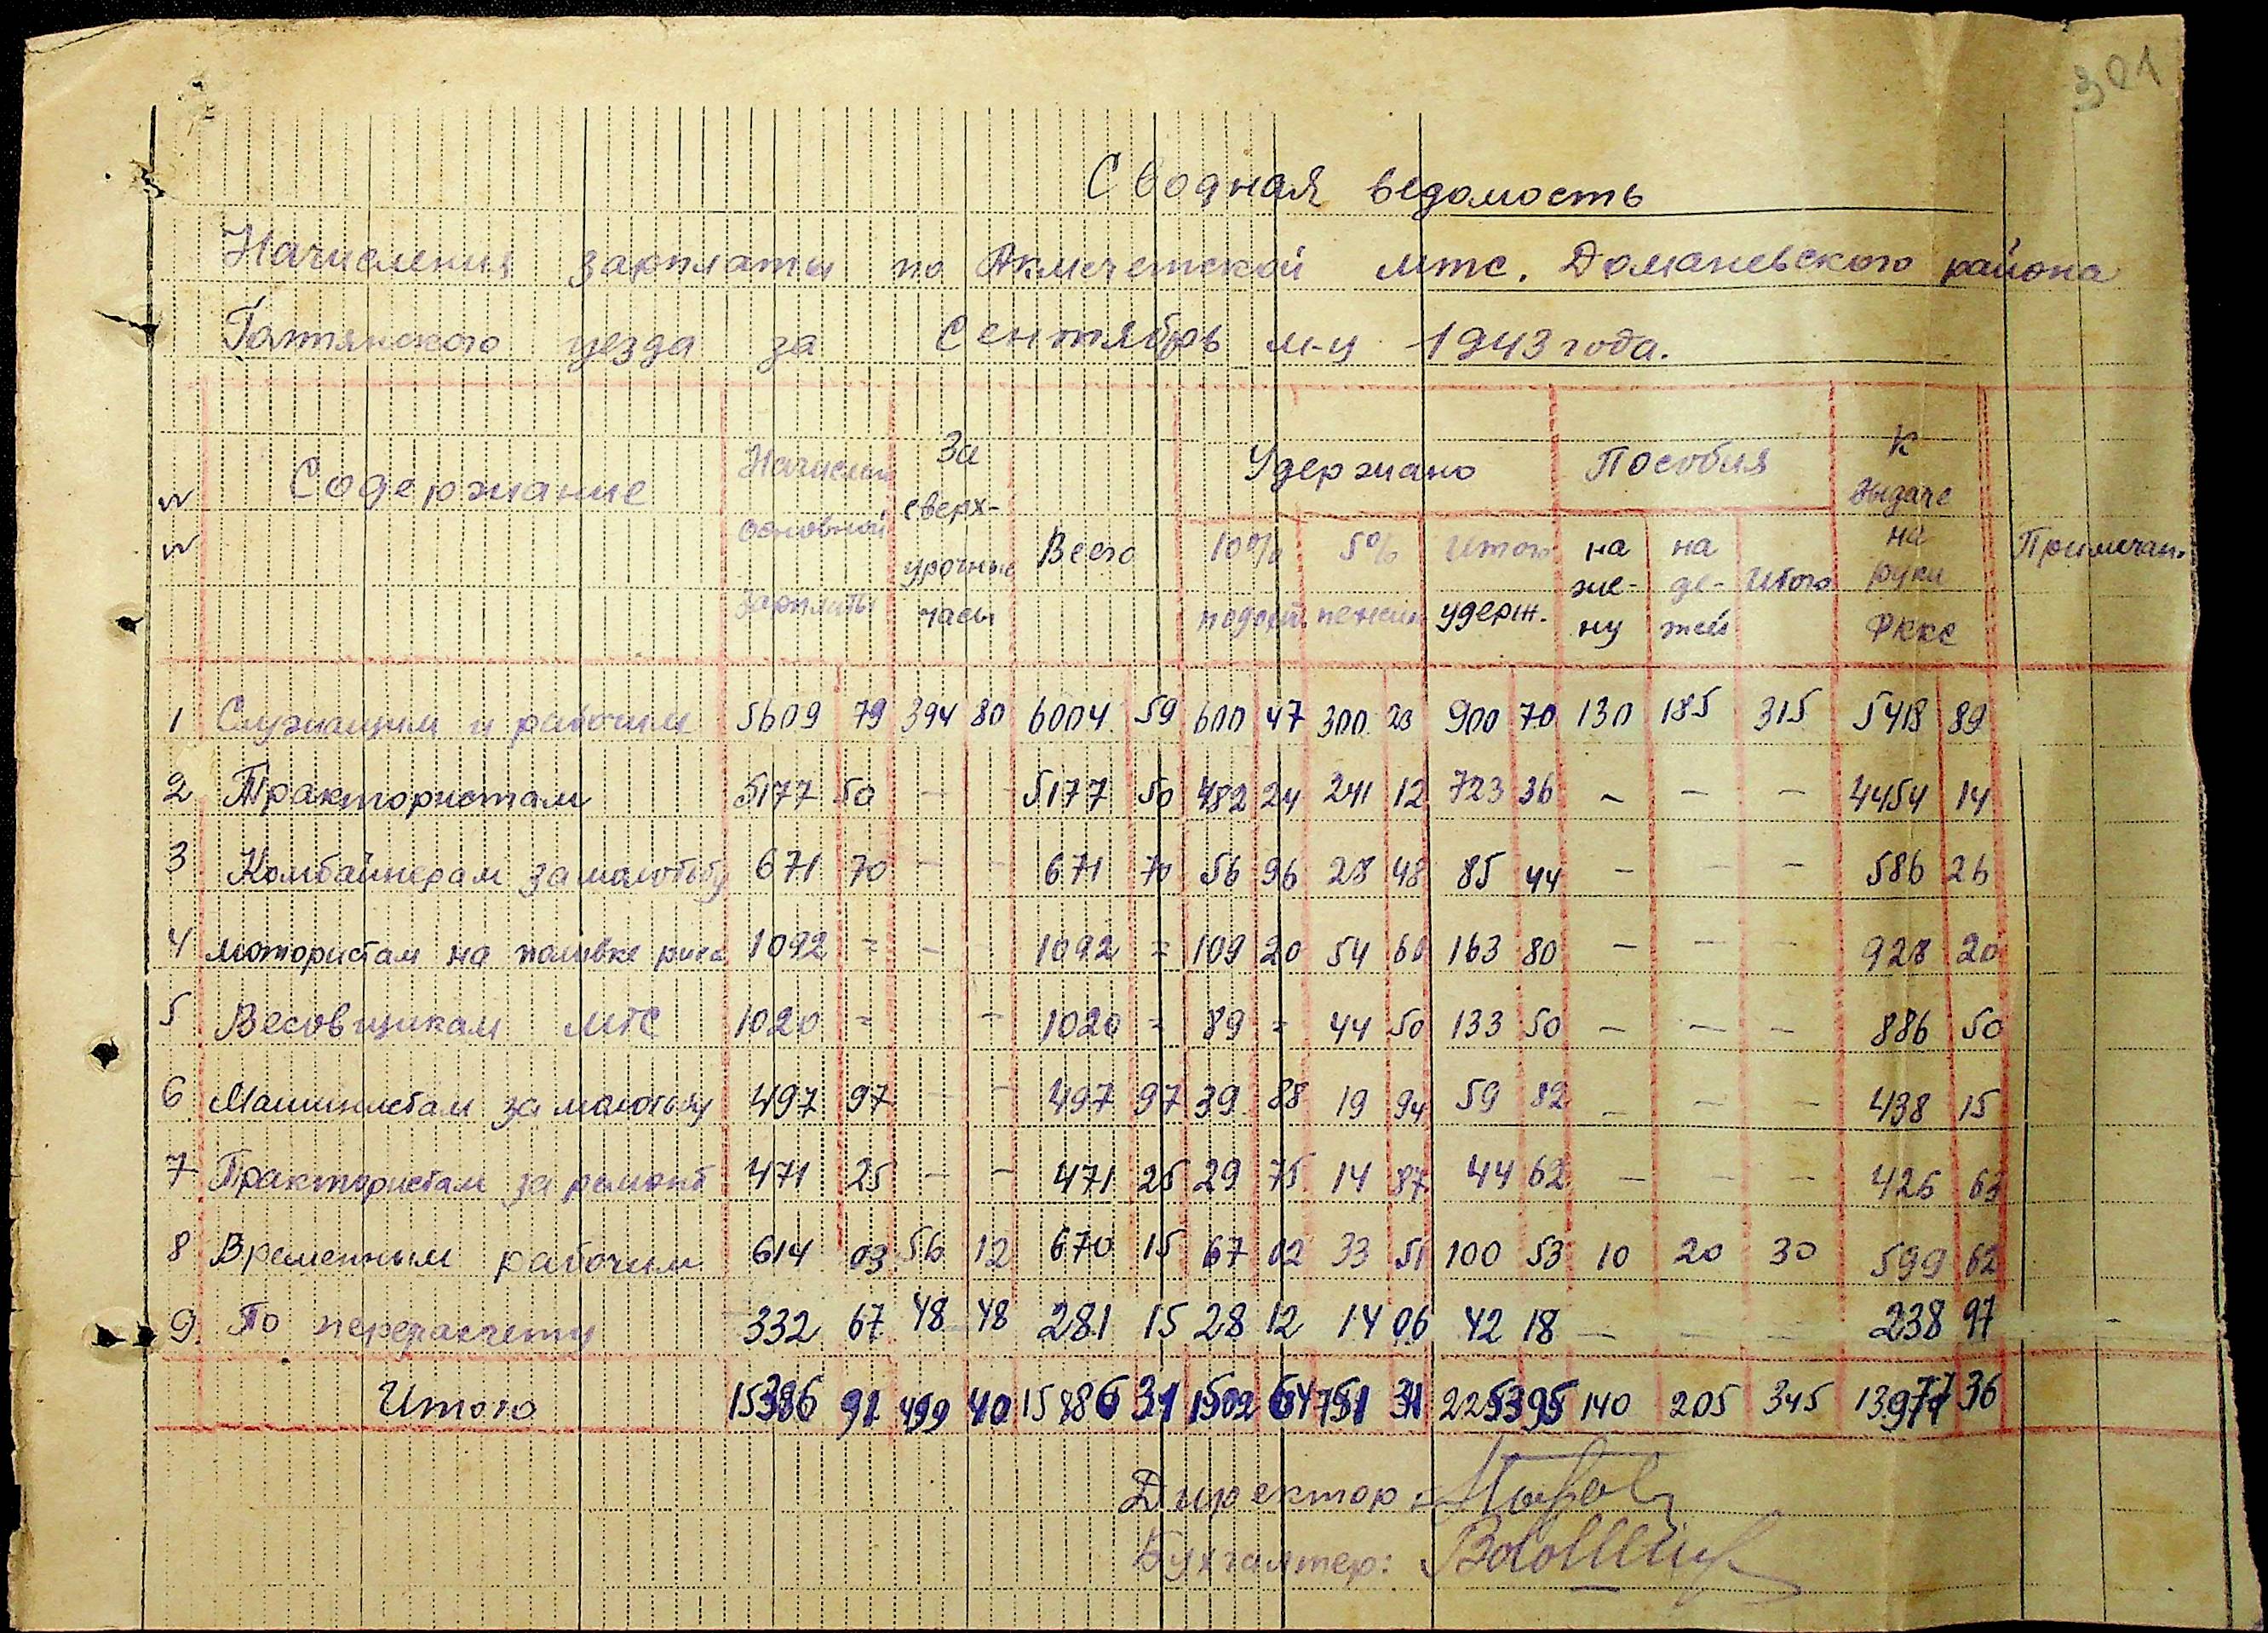 301
Сводная ведомость
Начисления зарплаты по Акмечетской мтс. Доманевского района
Голтянского уезда за Сентябрь м-ц 1943 года.
№№ Содержание Начислено основной зарплаты За сверх-урочные часы Всего Удержано 10% подох. 5% пенсии Итого удерж. Пособия на же-ну на де-тей Итого К выдаче на руки РККС Примечан.
1 Служащим и рабочим 5609 79 394 80 6004 59 600 47 300 23 900 70 130 185 315 5418 89
2 Трактористам 5177 50 – – 5177 50 482 24 241 12 723 36 – – – 4454 14
3 Комбайнерам за молотьбу 671 70 – – 671 70 56 96 28 48 85 44 – – – 586 26
4 мотористам на поливке риса 1092 = – – 1092 = 109 20 54 60 163 80 – – – 928 20
5 Весовщикам МТС 1020 = – 1020 = 89 = 44 50 133 50 – – – 886 50
6 Машинистам за молотьбу 497 97 – – 497 97 39 88 19 94 59 82 – – – 438 15
7 Трактористам за ремонт 471 25 – – 471 25 29 75 14 87 44 62 – – – 426 63
8 Временным рабочим 614 03 56 12 670 15 67 02 33 51 100 53 10 20 30 599 62
9. По перерасчету 332 67 48 48 281 15 28 12 14 06 42 18 – – – 238 97
Итого 15386 91 499 40 15886 31 1502 64 751 31 2253 95 140 205 345 13977 36
Директор:
Бухгалтер: